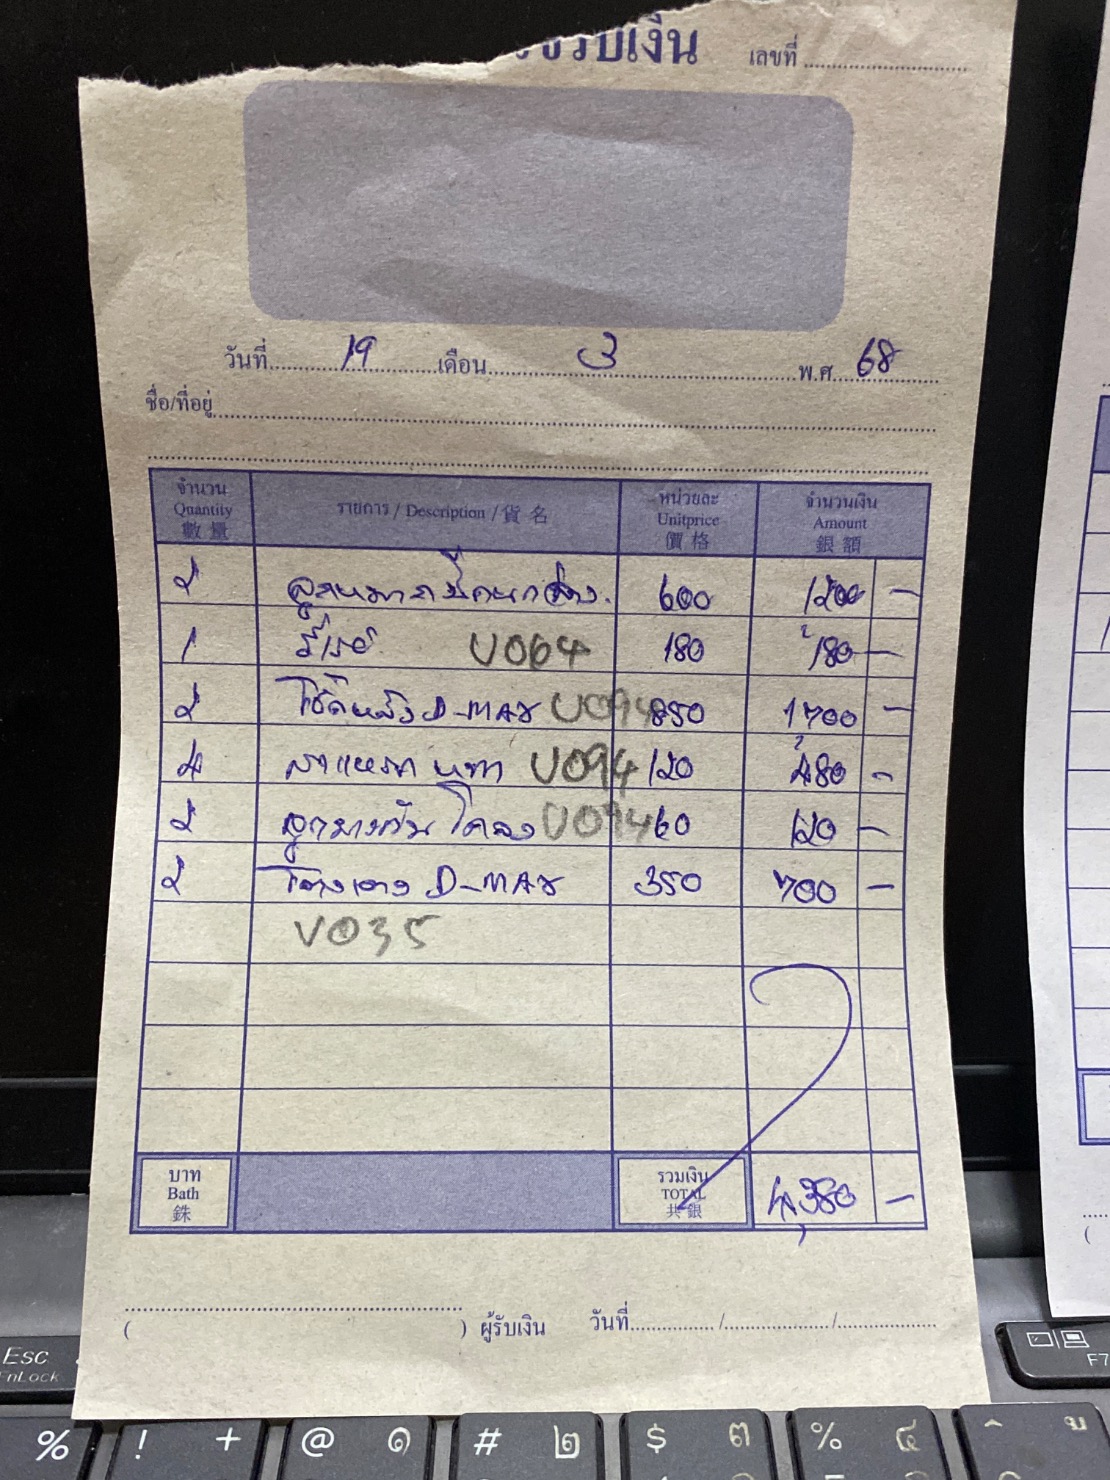 รับเงิน เลขที่
วันที่ 19 เดือน 3 พ.ศ. 68
ชื่อ/ที่อยู่
จำนวน รายการ / Description / 貨 名 หน่วยละ จำนวนเงิน
Quantity Unitprice Amount
數 量 價 格 銀 額
2 ลูกหมากปีกนกล่าง. 600 1200 —
1 รีเลย์ U064 180 180 —
2 โช๊คหลัง D-MAX U094 850 1700 —
4 120 480 —
U094
2 ลูกยางกันโคลง U094 60 120 —
2 D-MAX 350 700 —
V035
บาท รวมเงิน
Bath TOTAL 4,380 —
銖 共 銀
( ) ผู้รับเงิน วันที่ / /
Esc
FnLock
F7
% ! + @ ๑ # ๒ $ ๓ % ๔ ^ ข